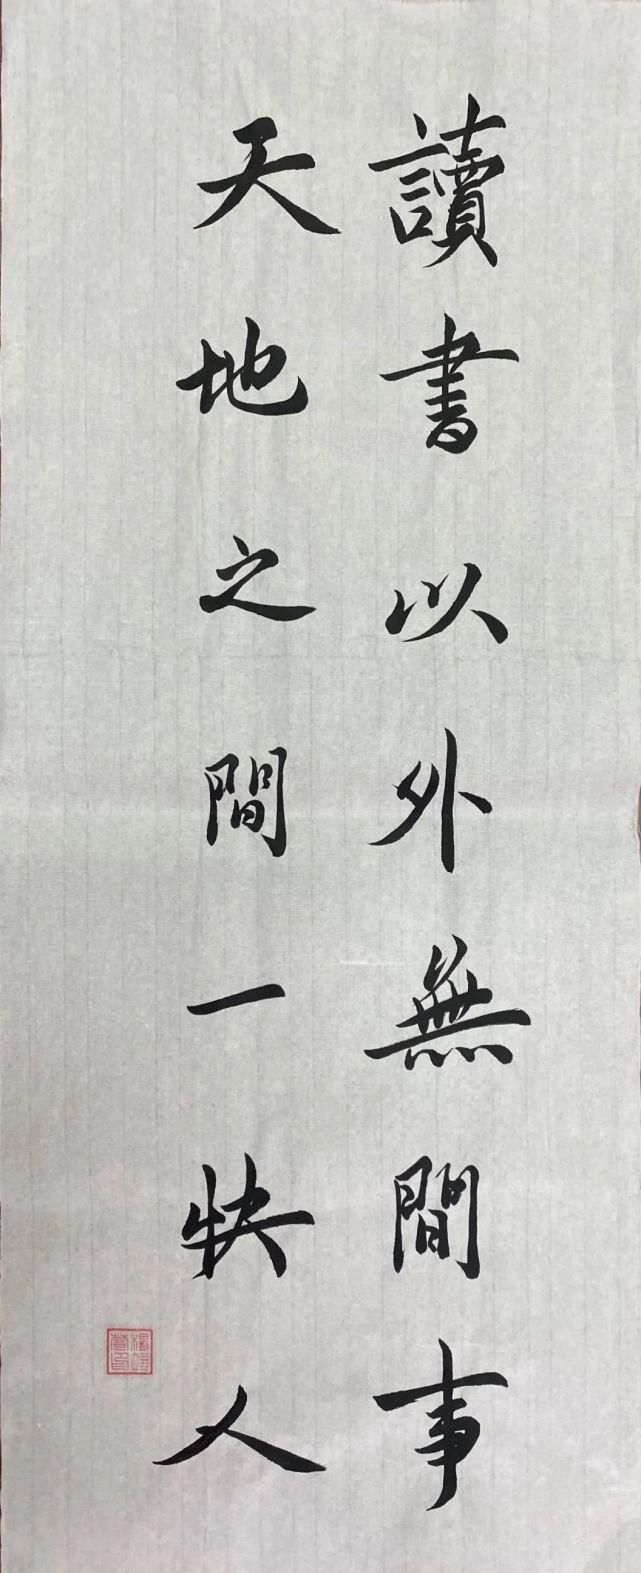 讀書以外無間事
天地之間一快人